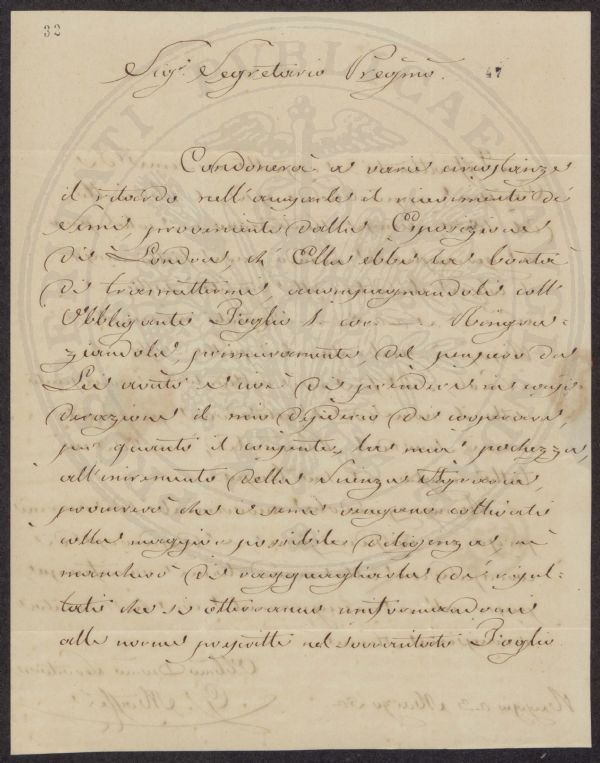 32
47
Sigr. Segretario Pregmo.
Condonerà a varie circostanze
il ritardo nell'accusarle il ricevimento de'
Semi provenienti dalla Esposizione
di Londra, ch'Ella ebbe la bontà
di trasmettermi, accompagnandole coll'
Obbligante Foglio 1. cor. Ringra-
ziandola, primieramente, del pensiero da
Lei avuto e cioè di prendere in consi-
derazione il mio desiderio di cooperare,
per quanto il consente la mia pochezza,
all'incremento della Scienza Agraria,
procurerò che i semi vengano coltivati
colla maggior possibile diligenza, nè
mancherò di ragguagliarla de' risul-
tati che si otterranno uniformandomi
alle norme prescritte nel sovracitato Foglio